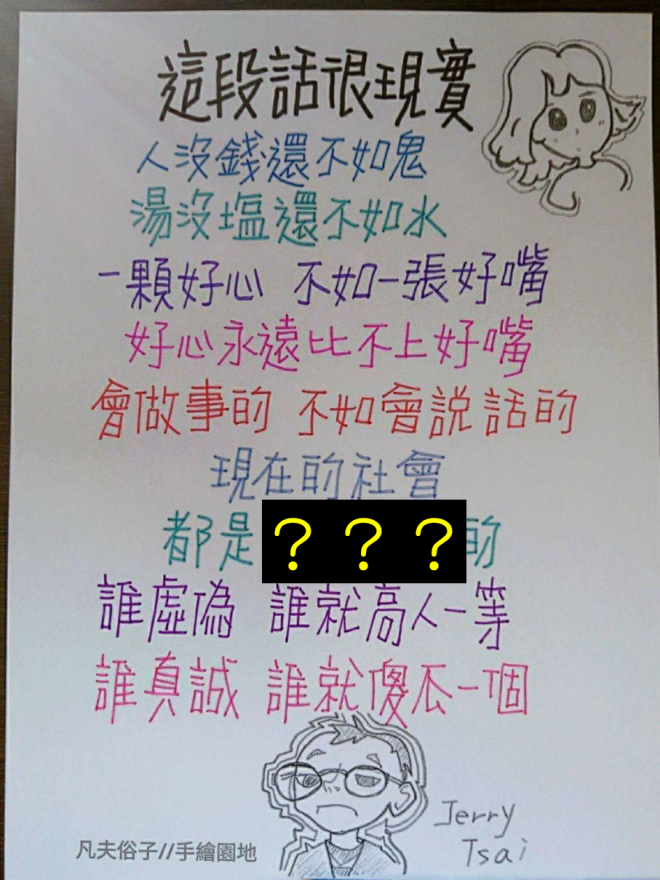 這段話很現實
人沒錢還不如鬼
湯沒塩還不如水
一顆好心 不如一張好嘴
好心永遠比不上好嘴
會做事的 不如會說話的
現在的社會
都是？？？的
誰虛偽 誰就高人一等
誰真誠 誰就傻瓜一個
Jerry
Tsai
凡夫俗子//手繪園地